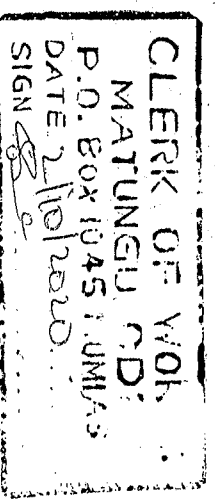 CLERK OF WOR
MATUNGU CD
P.O. BOX 1045
DATE 2/10/2020
SIGN